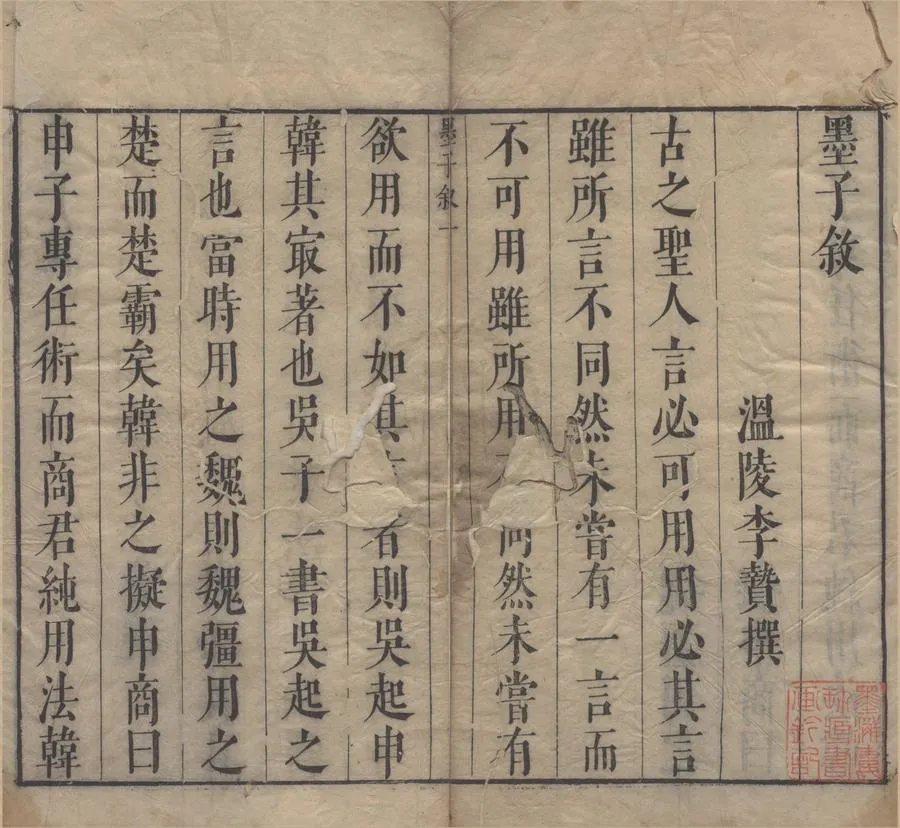 墨子敘
溫陵李贄撰
古之聖人言必可用用必其言
雖所言不同然未嘗有一言而
不可用雖所用不同然未嘗有
墨子敘一
欲用而不如其言者則吳起申
韓其㝡著也吳子一書吳起之
言也當時用之魏則魏彊用之
楚而楚霸矣韓非之擬申商曰
申子專任術而商君純用法韓